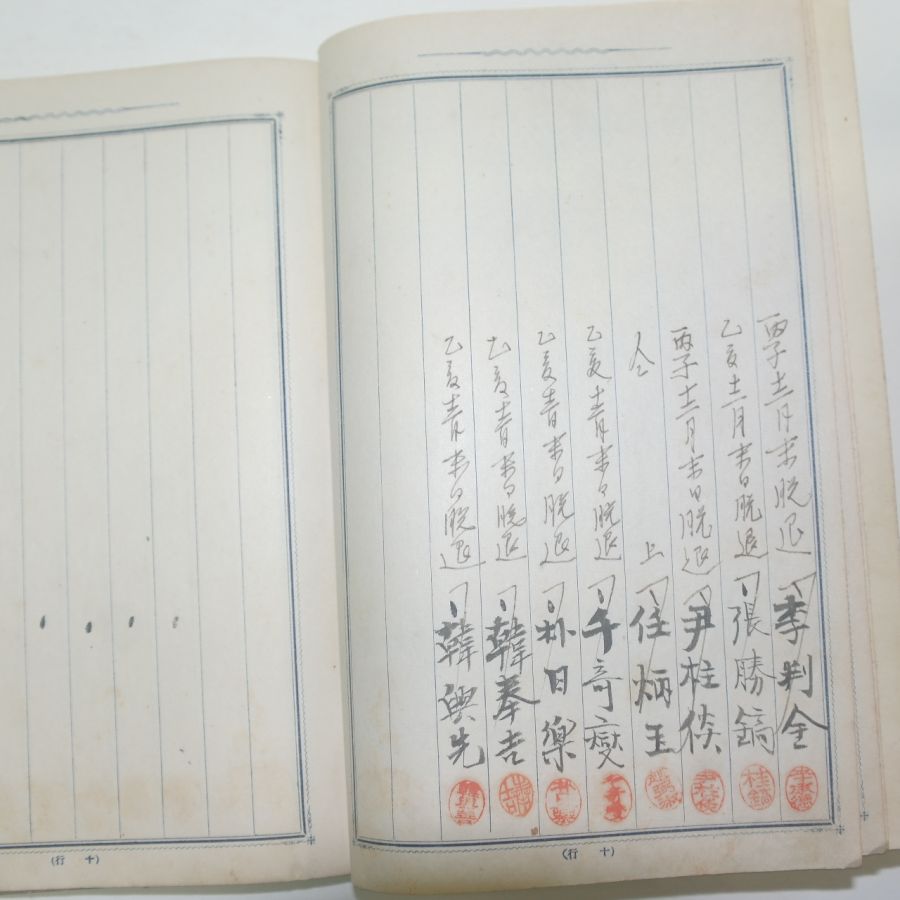 丙子十二月末脱退 李判全
乙亥十二月末日脱退 張勝鎬
丙子十二月末日脱退 尹柱倓
仝 上 任炳玉
乙亥十二月末日脱退 千奇燮
乙亥十二月末日脱退 朴日樂
乙亥十二月末日脱退 韓奉吉
乙亥十二月末日脱退 韓興先
(行十)
(行十)